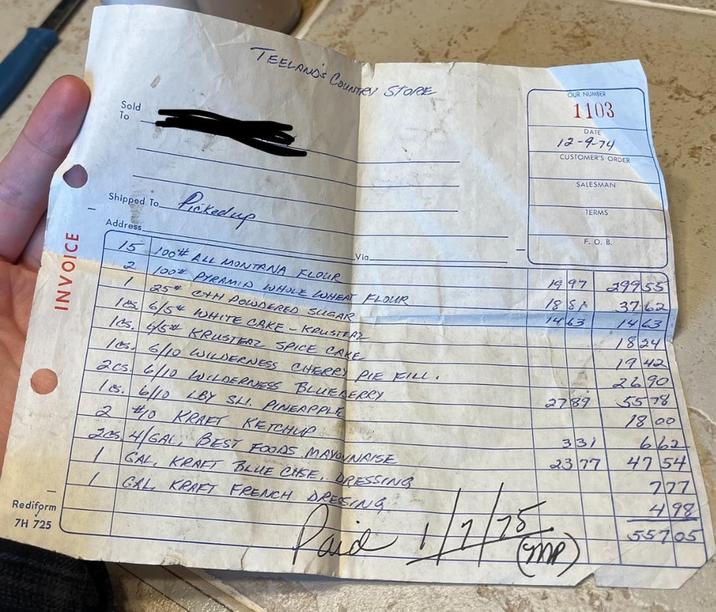 TEELAND'S COUNTRY STORE
OUR NUMBER
1103
Sold To
DATE
12-9-74
CUSTOMER'S ORDER
SALESMAN
Shipped To Picked up
TERMS
Address
Via
F. O. B.
INVOICE
15 100# ALL MONTANA FLOUR 19 97 299 55
2 100# PYRAMID WHOLE WHEAT FLOUR 18 81 37 62
1 25# C+H POWDERED SUGAR 14 63 14 63
1cs. 6/5# WHITE CAKE - KRUSTEAZ 18 24
1cs. 6/5# KRUSTEAZ SPICE CAKE 19 42
1cs. 6/10 WILDERNESS CHERRY PIE FILL. 26 90
2cs. 6/10 WILDERNESS BLUEBERRY 27 89 55 78
1cs. 6/10 LBY SLI. PINEAPPLE 18 00
2 #10 KRAFT KETCHUP 3 31 6 62
2cs 4/GAL. BEST FOODS MAYONNAISE 23 77 47 54
1 GAL. KRAFT BLUE CHSE. DRESSING 7 77
1 GAL KRAFT FRENCH DRESSING 4 98
557 05
Paid 1/7/75
(MP)
Rediform
7H 725